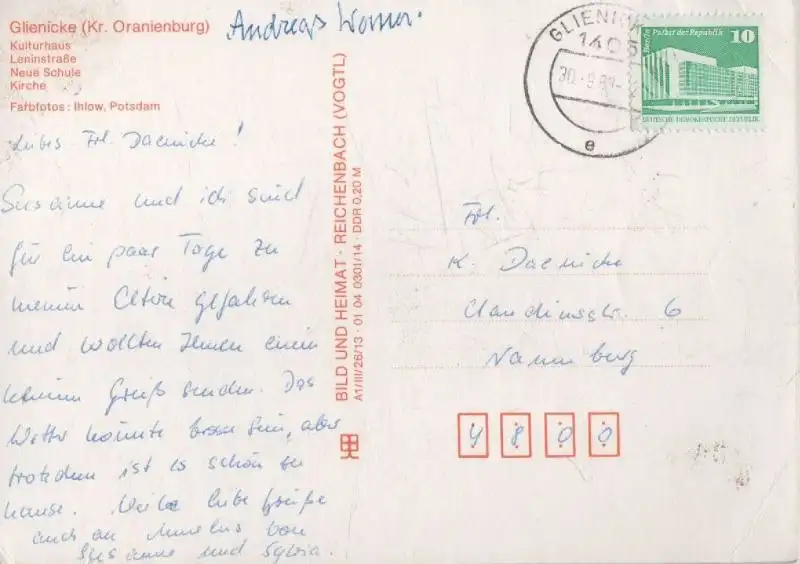 Glienicke (Kr. Oranienburg)
Kulturhaus
Leninstraße
Neue Schule
Kirche
Farbfotos: Ihlow, Potsdam
Andreas
Liebes Frl. Daenicke!
Susanne und ich sind
für ein paar Tage zu
meinen Eltern gefahren
und wollten Ihnen einen
kleinen Gruß senden. Das
Wetter könnte besser sein, aber
trotzdem ist es schön zu
hause. Viele liebe Grüße
auch an von
Susanne und Sylvia.
BILD UND HEIMAT · REICHENBACH (VOGTL)
A1/III/26/13 · 01 04 0301/14 · DDR 0,20 M
GLIENICKE
1405
30.-9.81-
e
Berlin Palast der Republik
10
DEUTSCHE DEMOKRATISCHE REPUBLIK
Frl.
K. Daenicke
Claudiusstr. 6
Naumburg
4800